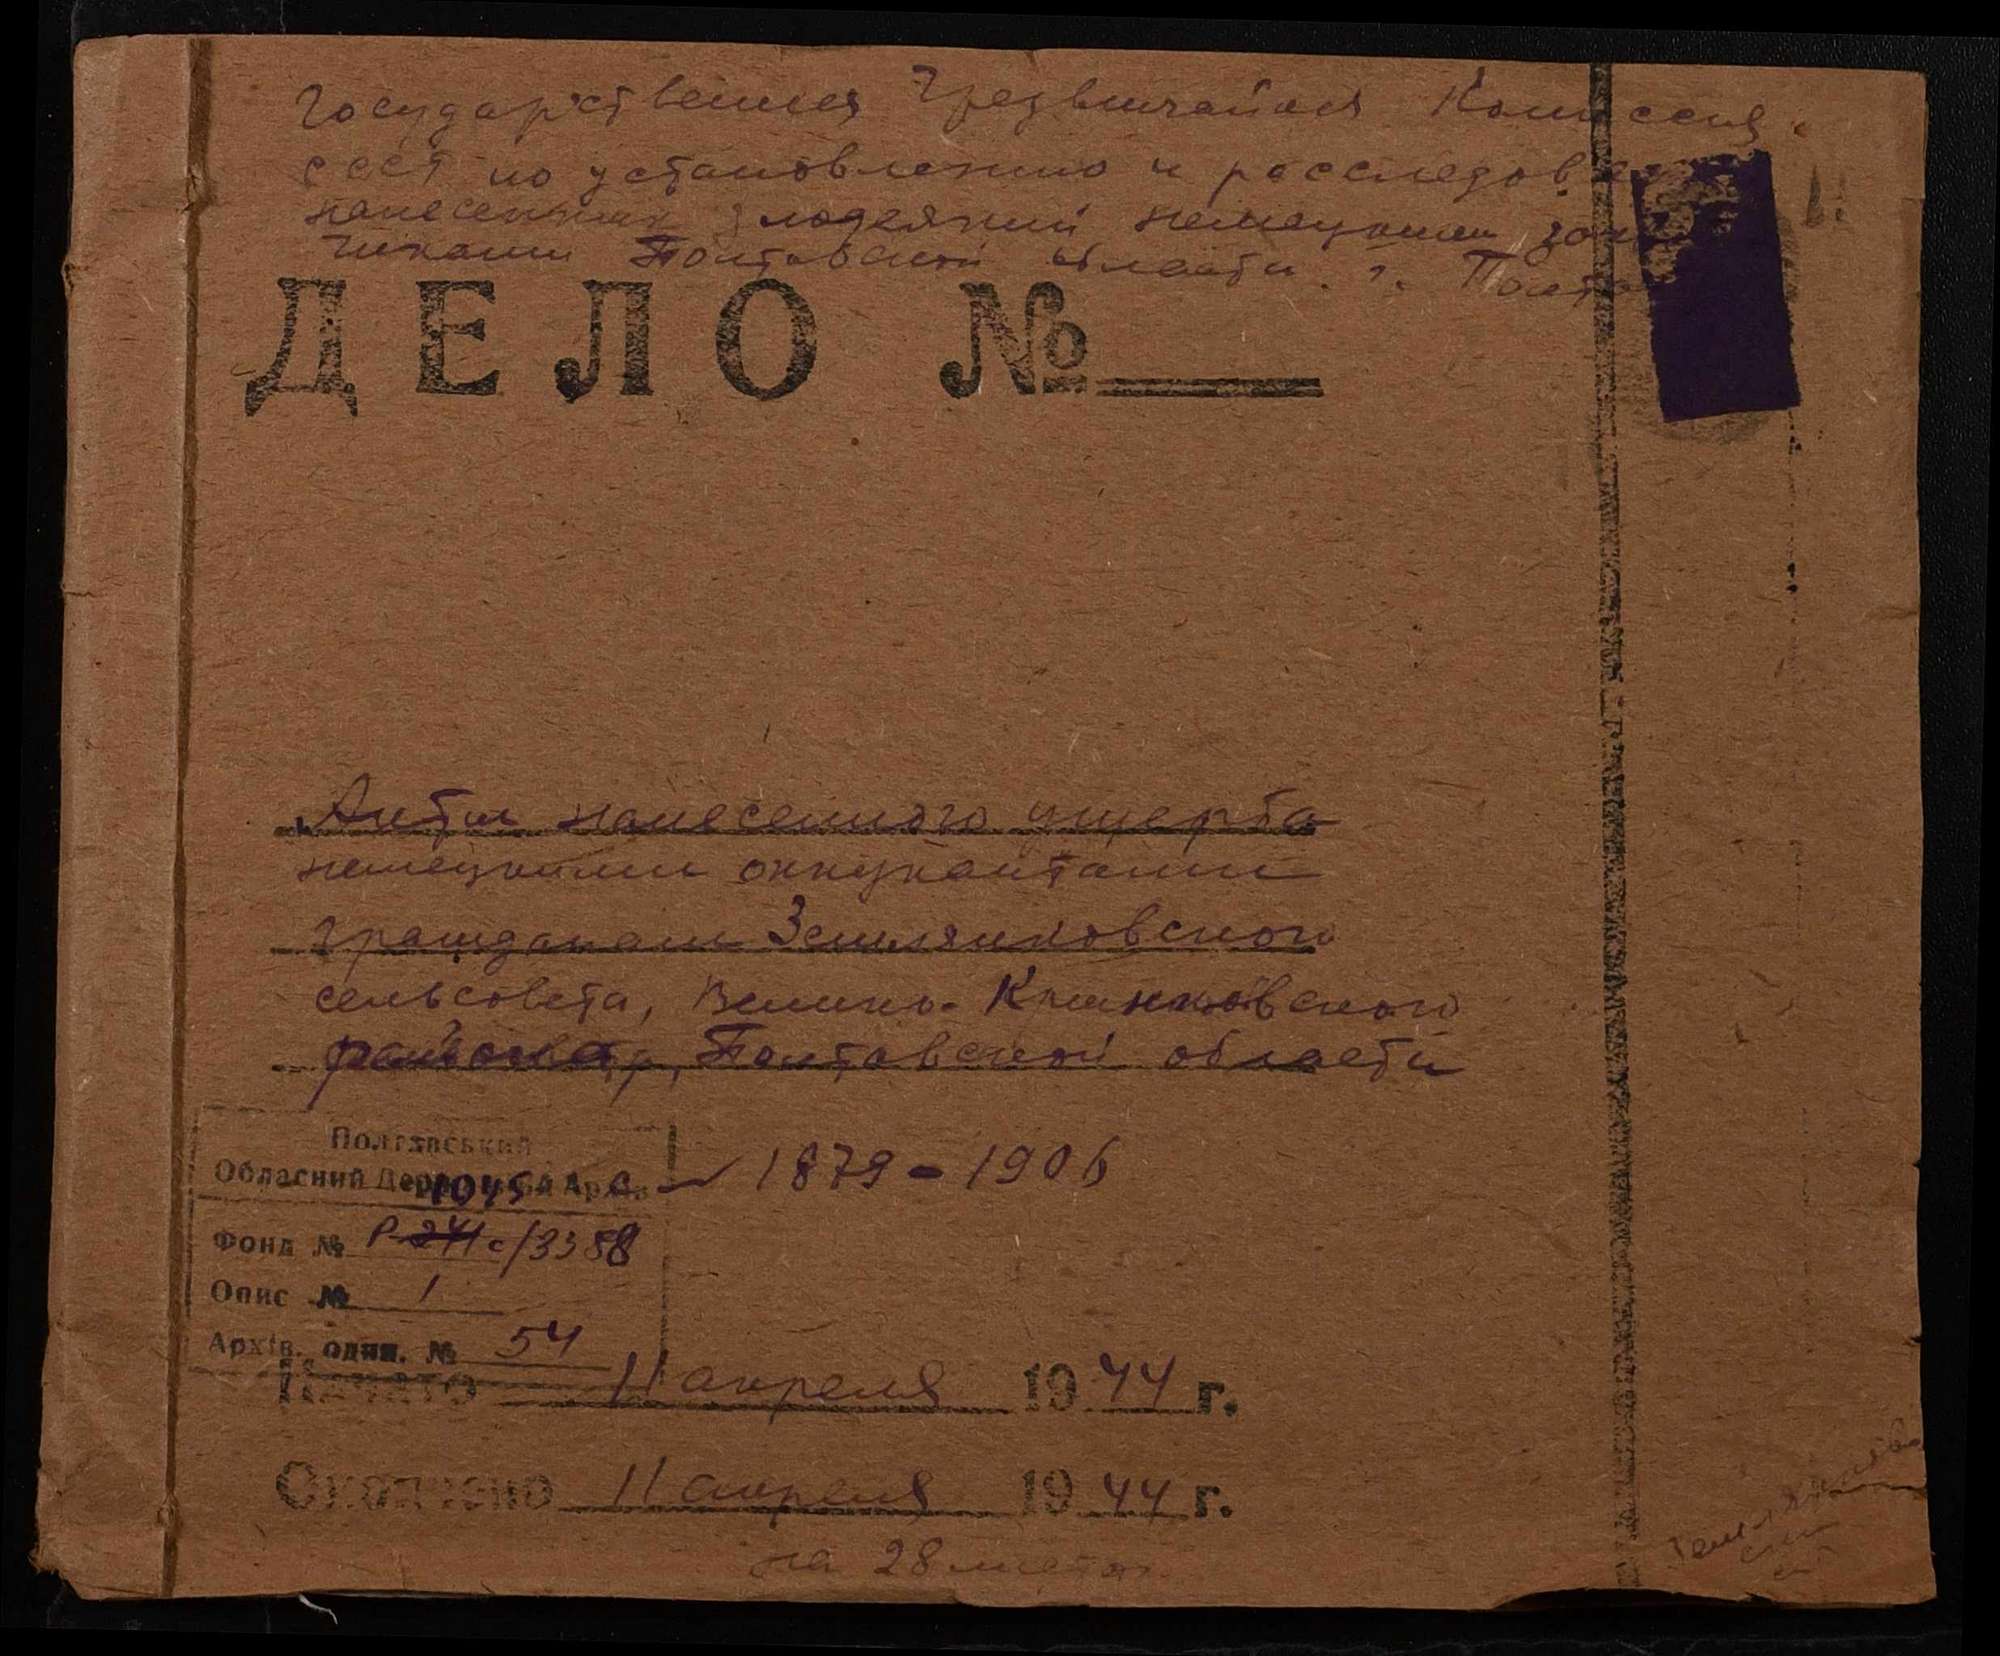 Государственная Чрезвычайная Комиссия
СССР по установлению и расследов
нанесенных злодеяний немецкими
чиками Полтавской области. г. Полта
ДЕЛО №
Акты нанесенного ущерба
немецкими оккупантами
гражданам Землянковского
сельсовета, Велико-Крынковского
района, Полтавской области
Полтавський
Обласний Державний Архів
1879-1906
Фонд № Р-241с/3388
Опис № 1
Архів. один. № 54
Начато 11 апреля 1944 г.
Окончено 11 апреля 1944 г.
на 28 листах